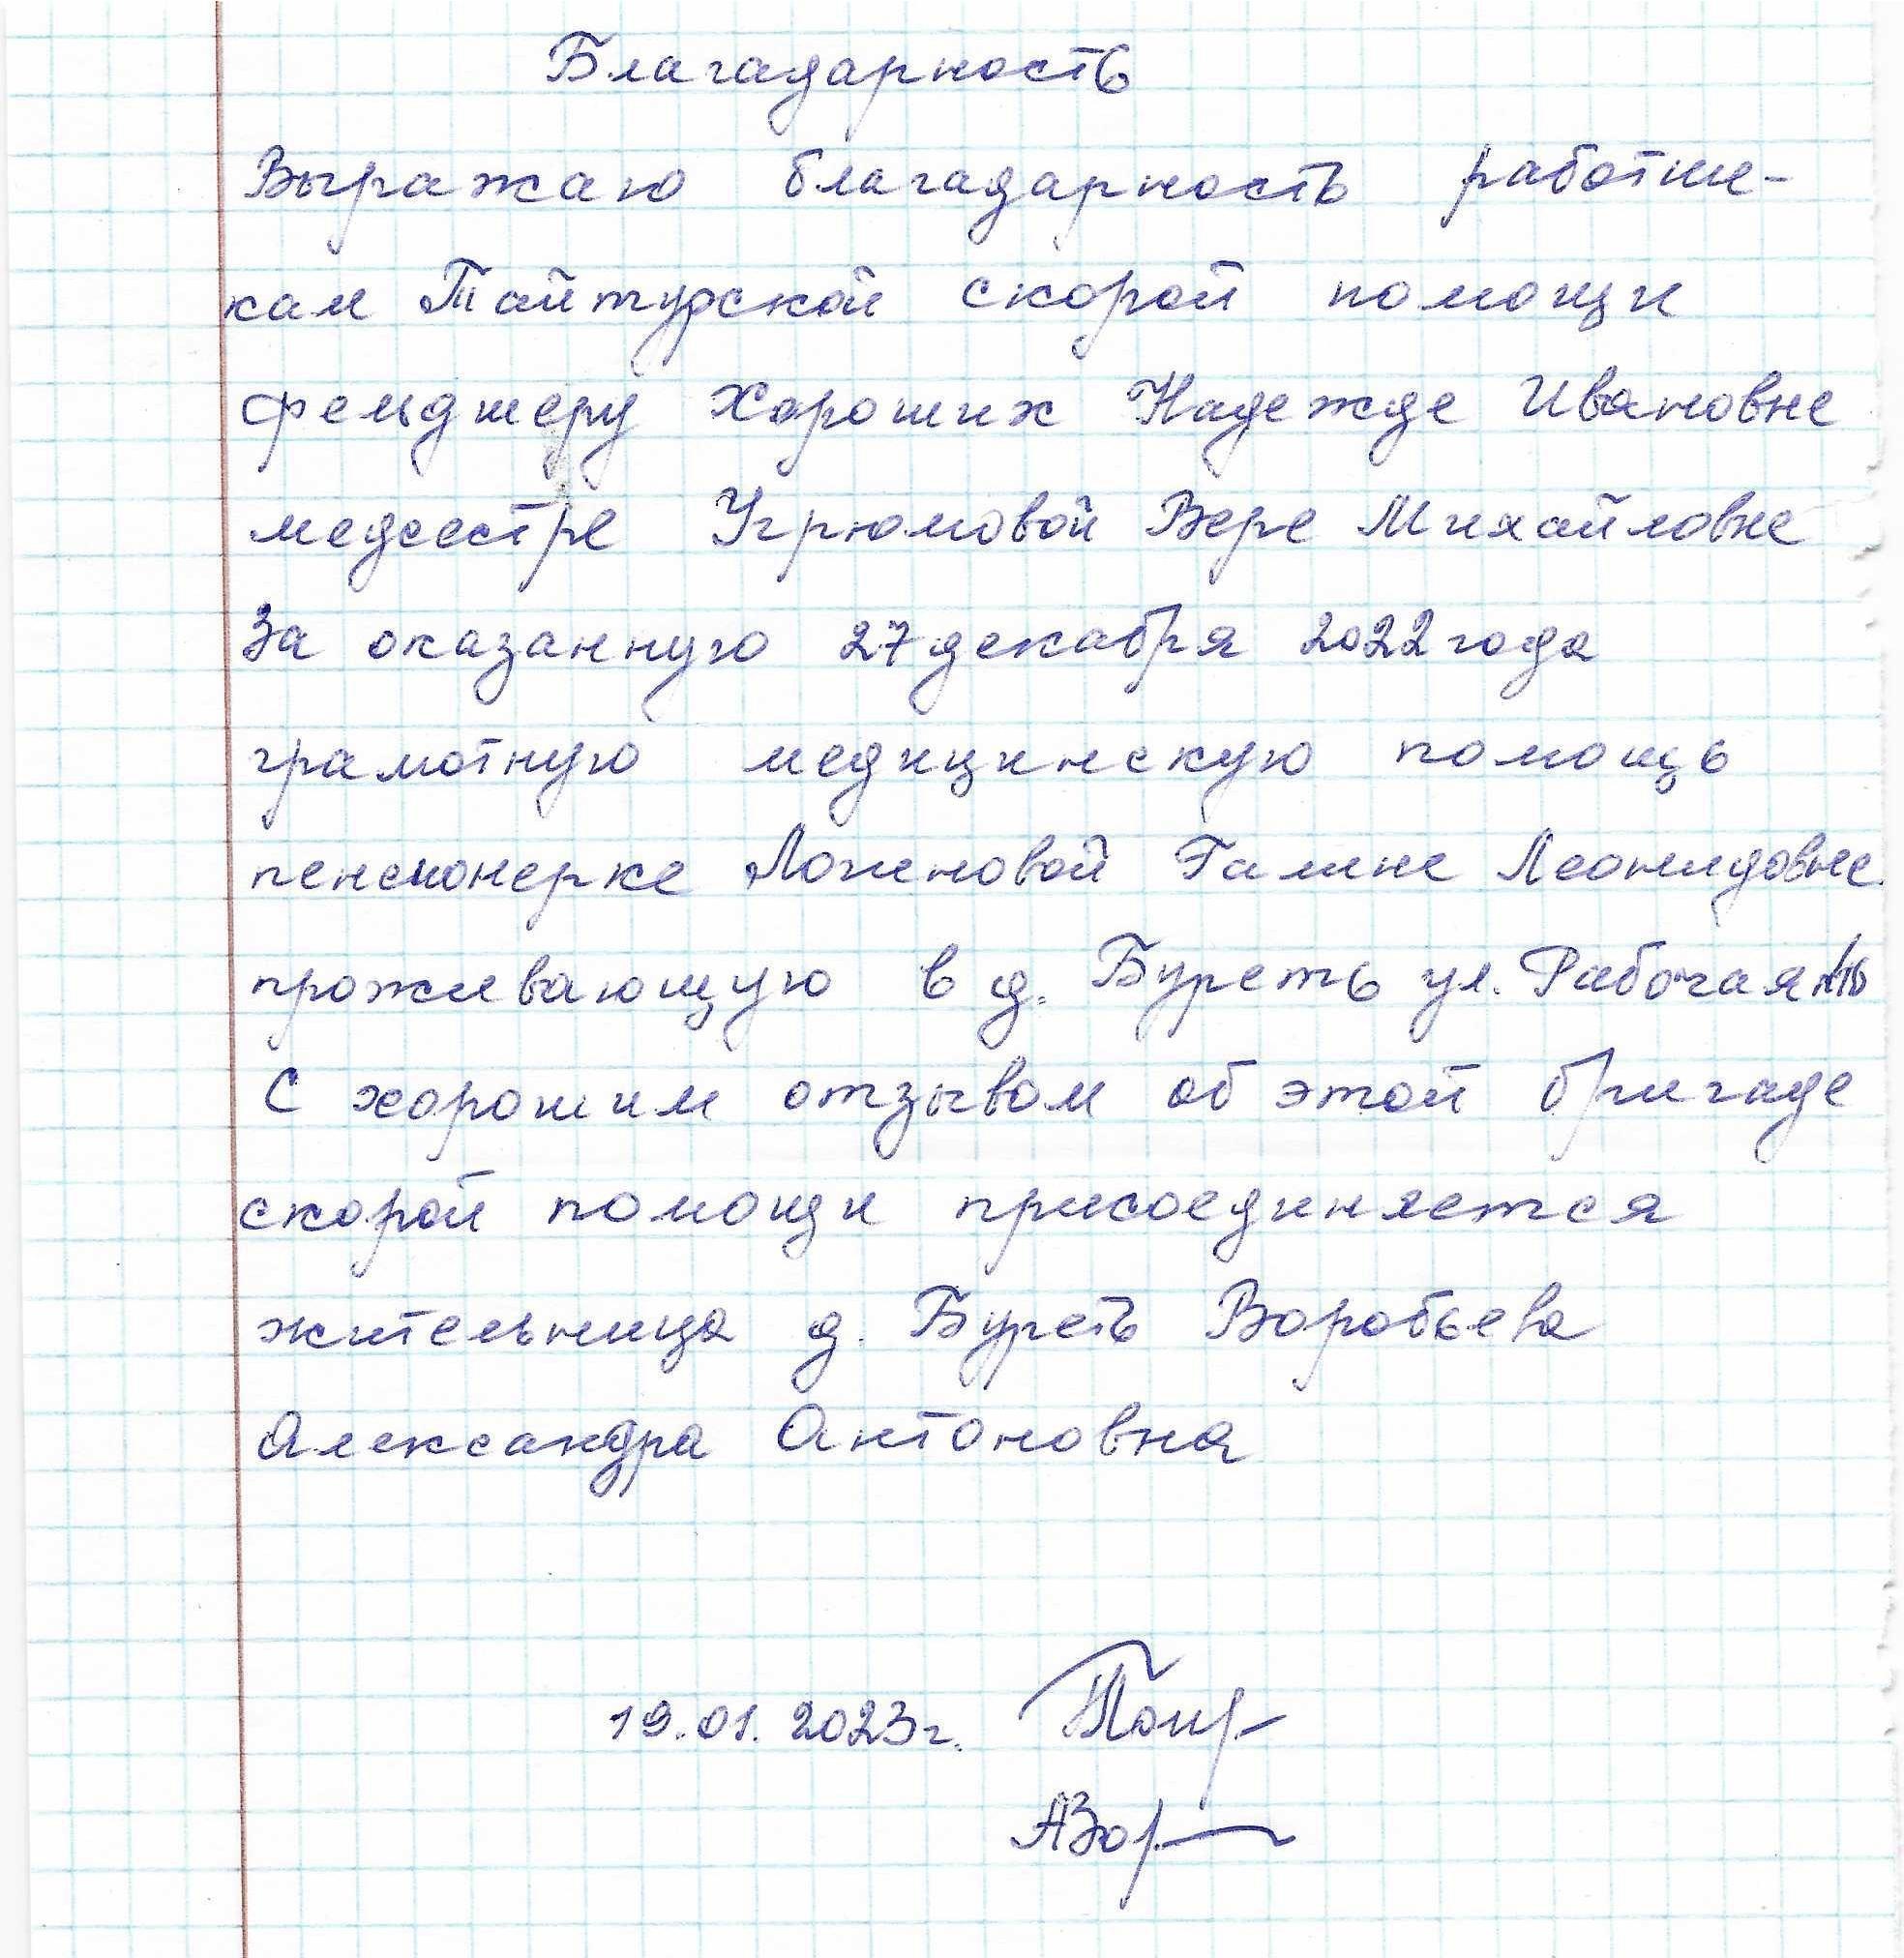 Благадарность
Выражаю благадарность работни-
кам Тайтурской скорой помощи
фельдшеру Хороших Надежде Ивановне
медсестре Угрюмовой Вере Михайловне
За оказанную 27 декабря 2022 года
грамотную медицинскую помощь
пенсионерке Логиновой Галине Леонидовне
проживающую в д. Буреть ул. Рабочая
С хорошим отзывом об этой бригаде
скорой помощи присоединяется
жительница д. Буреть Воробьева
Александра Антоновна
19.01.2023г.